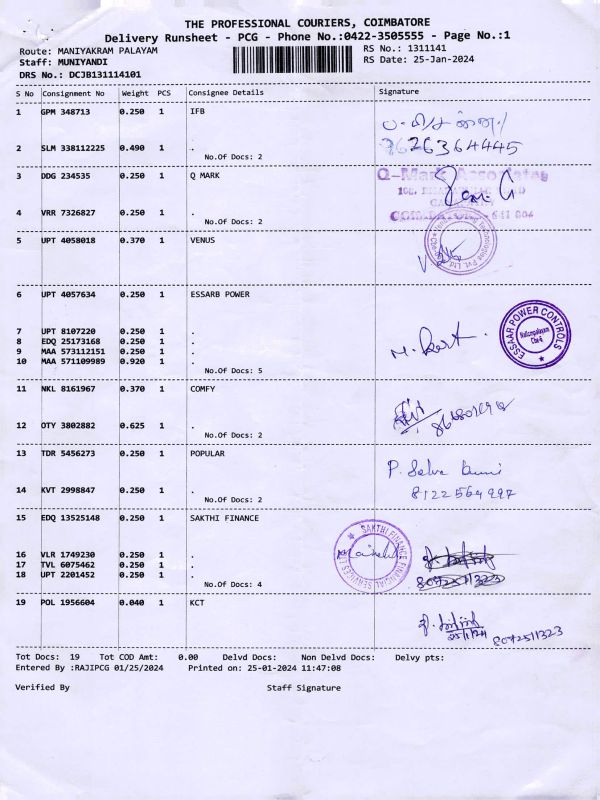 THE PROFESSIONAL COURIERS, COIMBATORE
Delivery Runsheet - PCG - Phone No.:0422-3505555 - Page No.:1
Route: MANIYAKRAM PALAYAM RS No.: 1311141
Staff: MUNIYANDI RS Date: 25-Jan-2024
DRS No.: DCJB131114101
S No Consignment No Weight PCS Consignee Details Signature
1 GPM 348713 0.250 1 IFB
2 SLM 338112225 0.490 1 . 7626364445
No.Of Docs: 2
3 DDG 234535 0.250 1 Q MARK Q-Mark Associates
4 VRR 7326827 0.250 1 .
No.Of Docs: 2 COIMBATORE - 641 004
5 UPT 4058018 0.370 1 VENUS
6 UPT 4057634 0.250 1 ESSARB POWER ESSAAR POWER CONTROLS
7 UPT 8107220 0.250 1 .
8 EDQ 25173168 0.250 1 .
9 MAA 573112151 0.250 1 .
10 MAA 571109989 0.920 1 .
No.Of Docs: 5
11 NKL 8161967 0.370 1 COMFY
12 OTY 3802882 0.625 1 .
No.Of Docs: 2
13 TDR 5456273 0.250 1 POPULAR P. Selva
14 KVT 2998847 0.250 1 .
No.Of Docs: 2
15 EDQ 13525148 0.250 1 SAKTHI FINANCE SAKTHI FINANCE FINANCIAL SERVICES LTD
16 VLR 1749230 0.250 1 .
17 TVL 6075462 0.250 1 .
18 UPT 2201452 0.250 1 .
No.Of Docs: 4
19 POL 1956604 0.040 1 KCT
25/1/24 8072511323
Tot Docs: 19 Tot COD Amt: 0.00 Delvd Docs: Non Delvd Docs: Delvy pts:
Entered By :RAJIPCG 01/25/2024 Printed on: 25-01-2024 11:47:08
Verified By Staff Signature